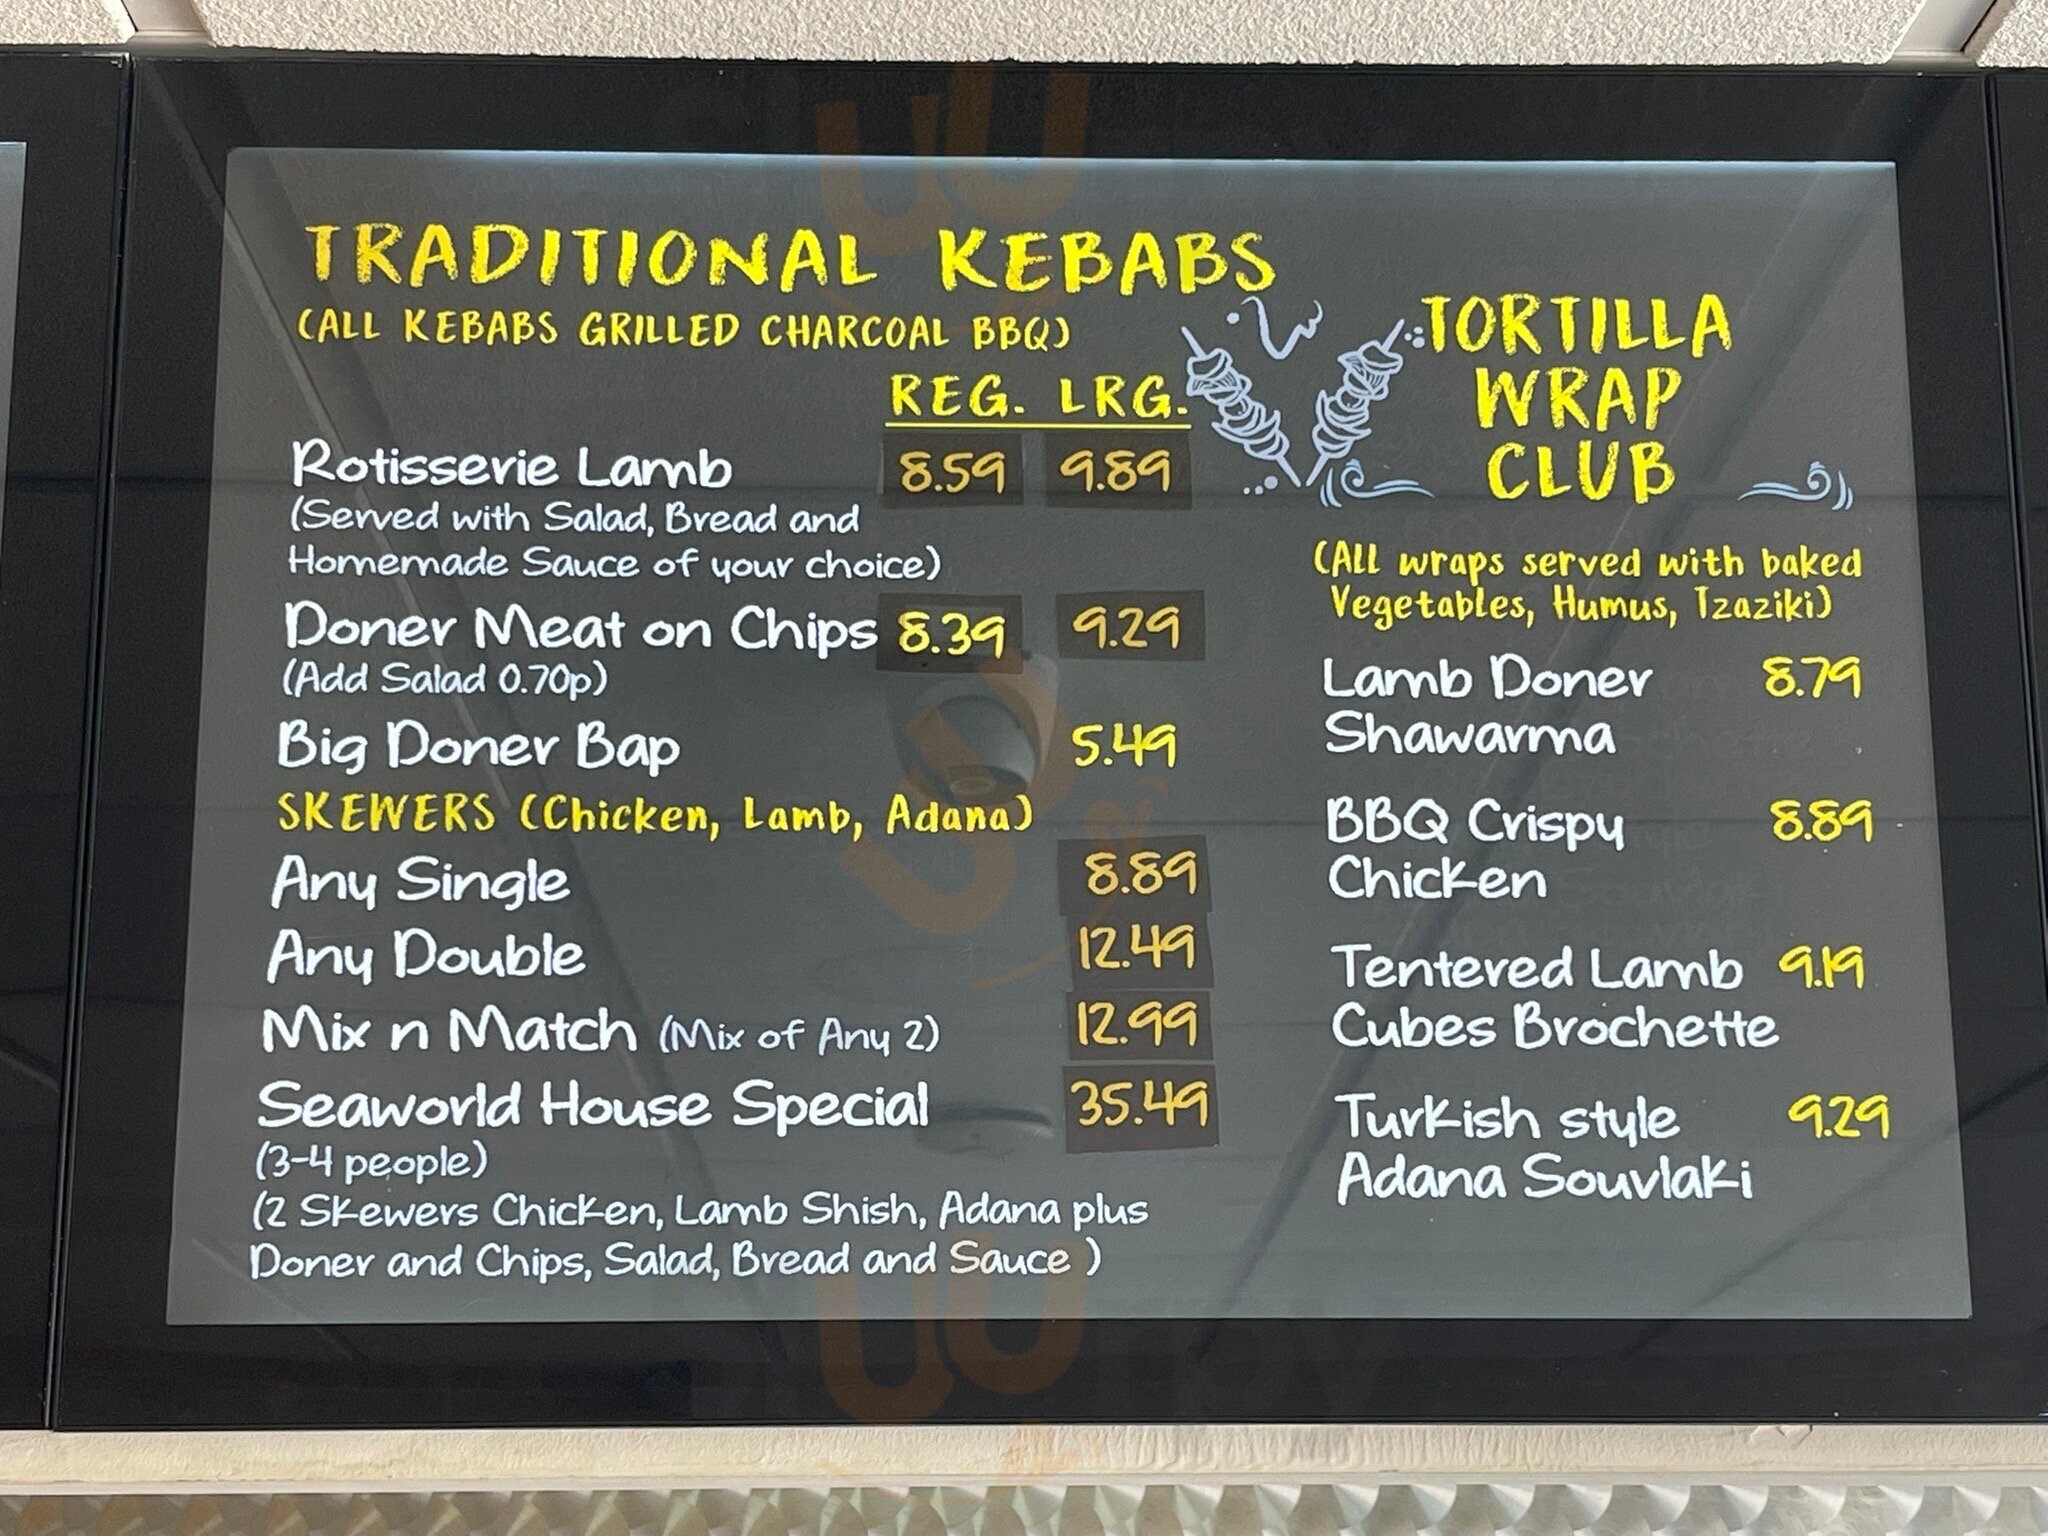 TRADITIONAL KEBABS
(ALL KEBABS GRILLED CHARCOAL BBQ)
REG. LRG.
Rotisserie Lamb 8.59 9.89
(Served with Salad, Bread and
Homemade Sauce of your choice)
Doner Meat on Chips 8.39 9.29
(Add Salad 0.70p)
Big Doner Bap 5.49
SKEWERS (Chicken, Lamb, Adana)
Any Single 8.89
Any Double 12.49
Mix n Match (Mix of Any 2) 12.99
Seaworld House Special 35.49
(3-4 people)
(2 Skewers Chicken, Lamb Shish, Adana plus
Doner and Chips, Salad, Bread and Sauce )
TORTILLA
WRAP
CLUB
(All wraps served with baked
Vegetables, Humus, Tzaziki)
Lamb Doner 8.79
Shawarma
BBQ Crispy 8.89
Chicken
Tentered Lamb 9.19
Cubes Brochette
Turkish style 9.29
Adana Souvlaki